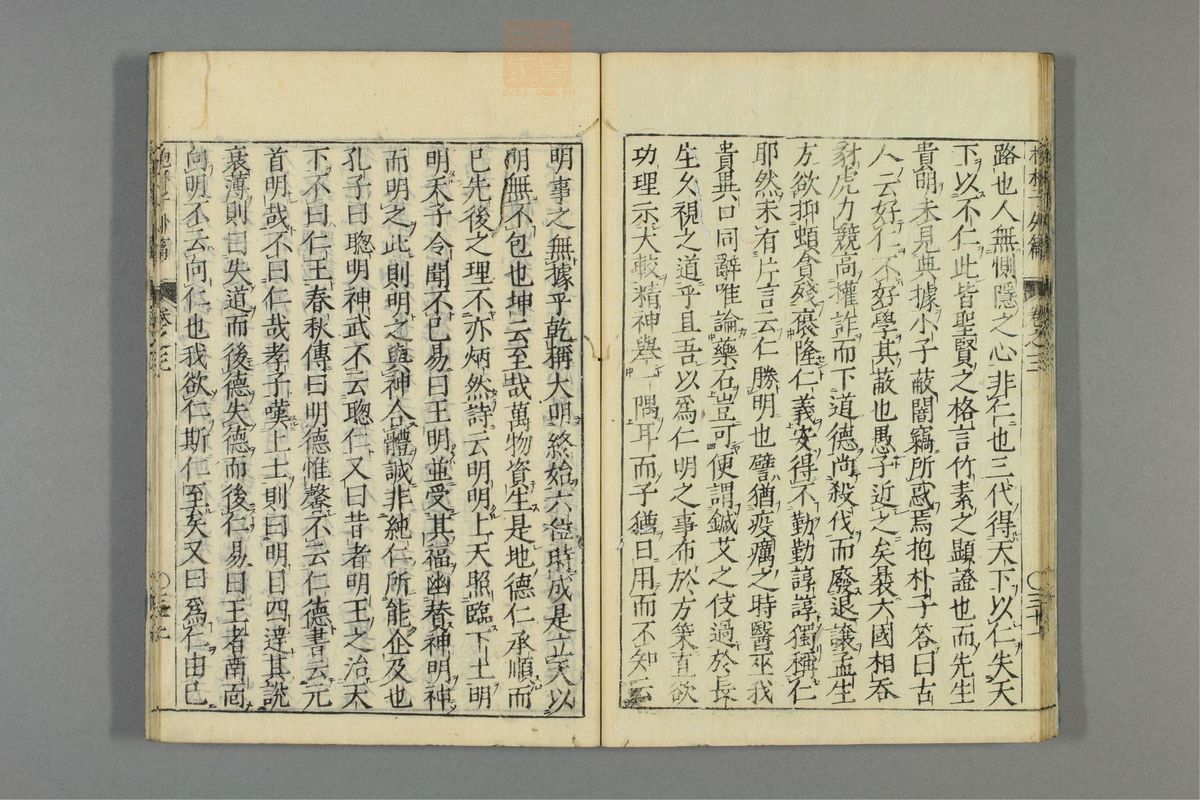 路也人無惻隱之心非仁也三代得天下以仁失天
下以不仁此皆聖賢之格言竹素之顯證也而先生
貴明未見典據小子蔽闇竊所惑焉抱朴子答曰古
人云好仁不好學其蔽也愚子近之矣曩六國相吞
豺虎力競高權詐而下道德尚殺伐而廢退讓孟生
方欲抑頓貪殘褒隆仁義安得不勤勤諄諄獨稱仁
耶然未有片言云仁勝明也譬猶疫癘之時醫巫我
貴異口同辭唯論藥石豈可便謂鍼艾之伎過於長
生久視之道乎且吾以爲仁明之事布於方策直欲
功理示大較精神舉一隅耳而子猶日用而不知云
明事之無據乎乾稱大明終始六位時成是立天以
明無不包也坤云至哉萬物資生是地德仁承順而
已先後之理不亦炳然詩云明明上天照臨下土明
明天子令聞不已易曰王明並受其福幽替神明神
而明之此則明之與神合體誠非純仁所能企及也
孔子曰聦明神武不云聦仁又曰昔者明王之治天
下不曰仁王春秋傳曰明德惟馨不云仁德書云元
首明哉不曰仁哉孝子嘆上士則曰明目四達其說
衰薄則曰失道而後德失德而後仁易曰王者南面
向明不云向仁也我欲仁斯仁至矣又曰爲仁由己
卷之三